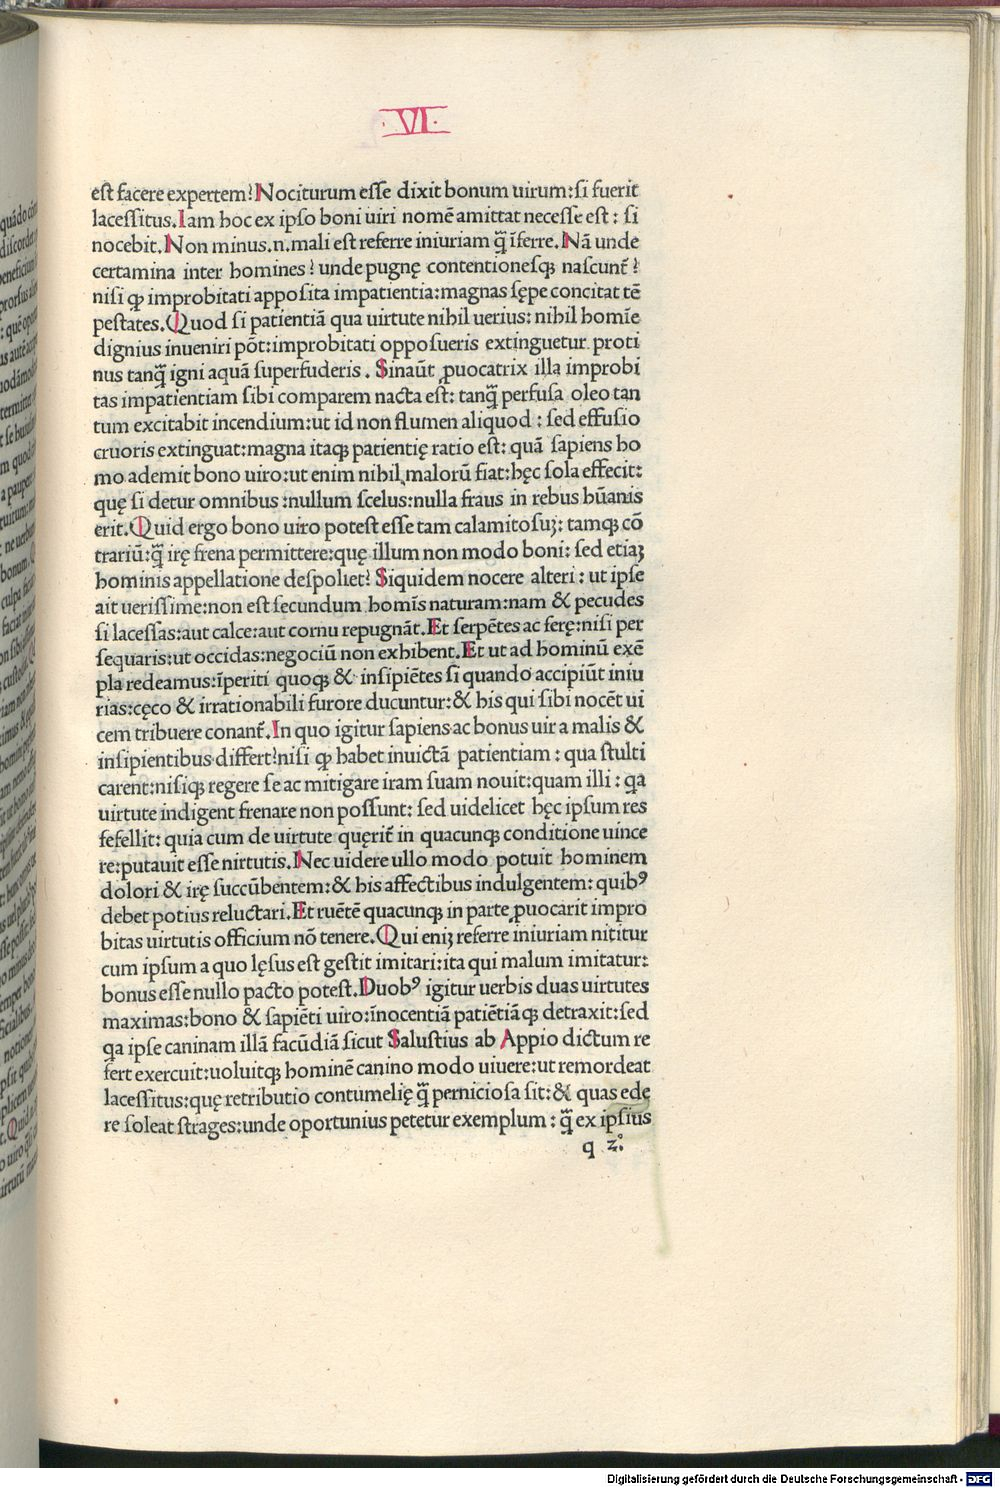 ·VI·
est facere expertem? Nociturum esse dixit bonum uirum: si fuerit
lacessitus. Iam hoc ex ipso boni uiri nomē amittat necesse est: si
nocebit. Non minus .n. mali est referre iniuriam q̄ īferre. Nā unde
certamina inter homines? unde pugnę contentionesqꝫ nascunt᷑?
nisi ꝙ improbitati apposita impatientia: magnas sępe concitat tē
pestates. Quod si patientiā qua uirtute nihil uerius: nihil homīe
dignius inueniri pōt: improbitati opposueris extinguetur proti
nus tanq̄ igni aquā superfuderis. Sinaūt ꝓuocatrix illa improbi
tas impatientiam sibi comparem nacta est: tanq̄ perfusa oleo tan
tum excitabit incendium: ut id non flumen aliquod: sed effusio
cruoris extinguat: magna itaqꝫ patientię ratio est: quā sapiens ho
mo ademit bono uiro: ut enim nihil malorū fiat: hęc sola effecit:
quę si detur omnibus: nullum scelus: nulla fraus in rebus hūanis
erit. Quid ergo bono uiro potest esse tam calamitosuꝫ: tamqꝫ cō
trariū: q̄ irę frena permittere: quę illum non modo boni: sed etiaꝫ
hominis appellatione despoliet? Siquidem nocere alteri: ut ipse
ait uerissime: non est secundum homīs naturam: nam & pecudes
si lacessas: aut calce: aut cornu repugnāt. Et serpētes ac ferę: nisi per
sequaris: ut occidas: negociū non exhibent. Et ut ad hominū exē
pla redeamus: īperiti quoqꝫ & insipiētes si quando accipiūt iniu
rias: cęco & irrationabili furore ducuntur: & his qui sibi nocēt ui
cem tribuere conant᷑. In quo igitur sapiens ac bonus uir a malis &
insipientibus differt? nisi ꝙ habet inuictā patientiam: qua stulti
carent: nisiqꝫ regere se ac mitigare iram suam nouit: quam illi: qa
uirtute indigent frenare non possunt: sed uidelicet hęc ipsum res
fefellit: quia cum de uirtute quęrit᷑ in quacunqꝫ conditione uince
re: putauit esse nirtutis. Nec uidere ullo modo potuit hominem
dolori & irę succūbentem: & his affectibus indulgentem: quibꝰ
debet potius reluctari. Et ruētē quacunqꝫ in parte ꝓuocarit impro
bitas uirtutis officium nō tenere. Qui eniꝫ referre iniuriam nititur
cum ipsum a quo lęsus est gestit imitari: ita qui malum imitatur:
bonus esse nullo pacto potest. Duobꝰ igitur uerbis duas uirtutes
maximas: bono & sapiēti uiro: īnocentiā patiētiāqꝫ detraxit: sed
qa ipse caninam illā facūdiā sicut Salustius ab Appio dictum re
fert exercuit: uoluitqꝫ hominē canino modo uiuere: ut remordeat
lacessitus: quę retributio contumelię q̄ perniciosa sit: & quas ede
re soleat strages: unde oportunius petetur exemplum: q̄ ex ipsius
q 2.
Digitalisierung gefördert durch die Deutsche Forschungsgemeinschaft - DFG